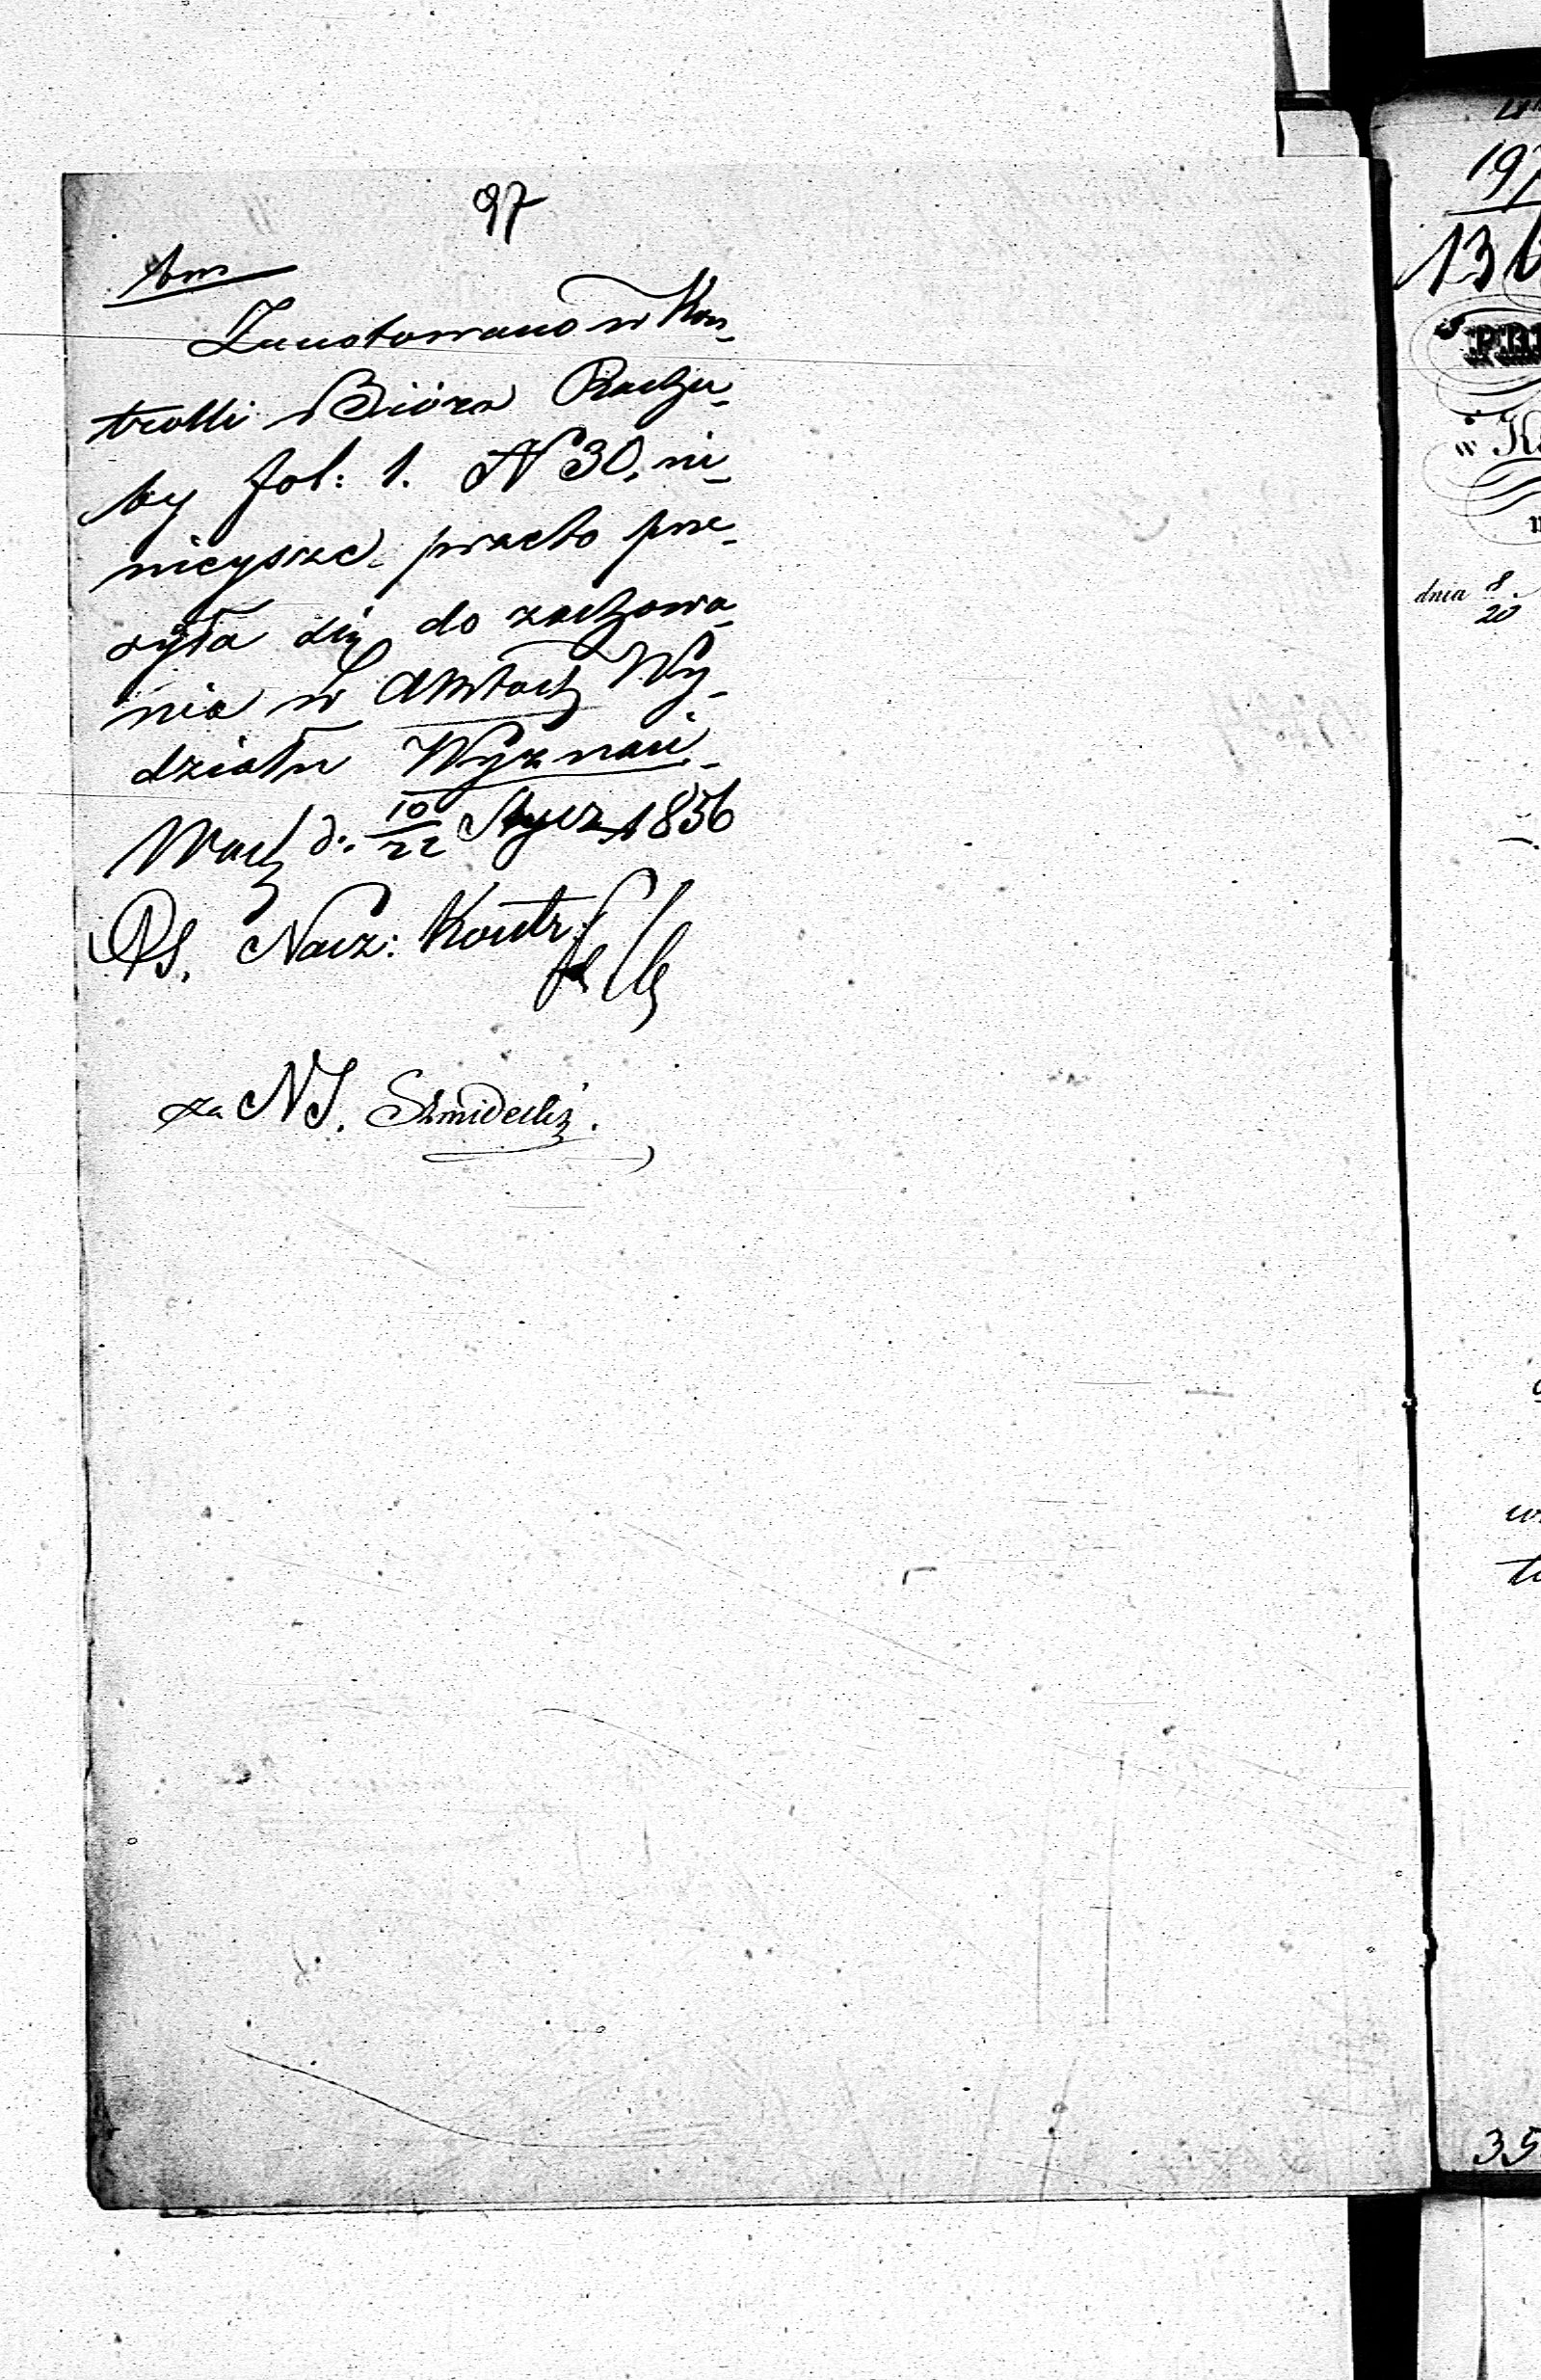 97
Zanotowano w Kon-
trolli Bióra Rachu-
by fol: 1. N 30, ni-
nieysze przeto prze-
syła się do zachowa-
nia w Aktach Wy-
działu Wyznań.
Warsz d. 10/22 Stycz 1856
Ps. Nacz: Kontr:
za NS. Szmidecki.
197
136
w K
dnia 8/20
35